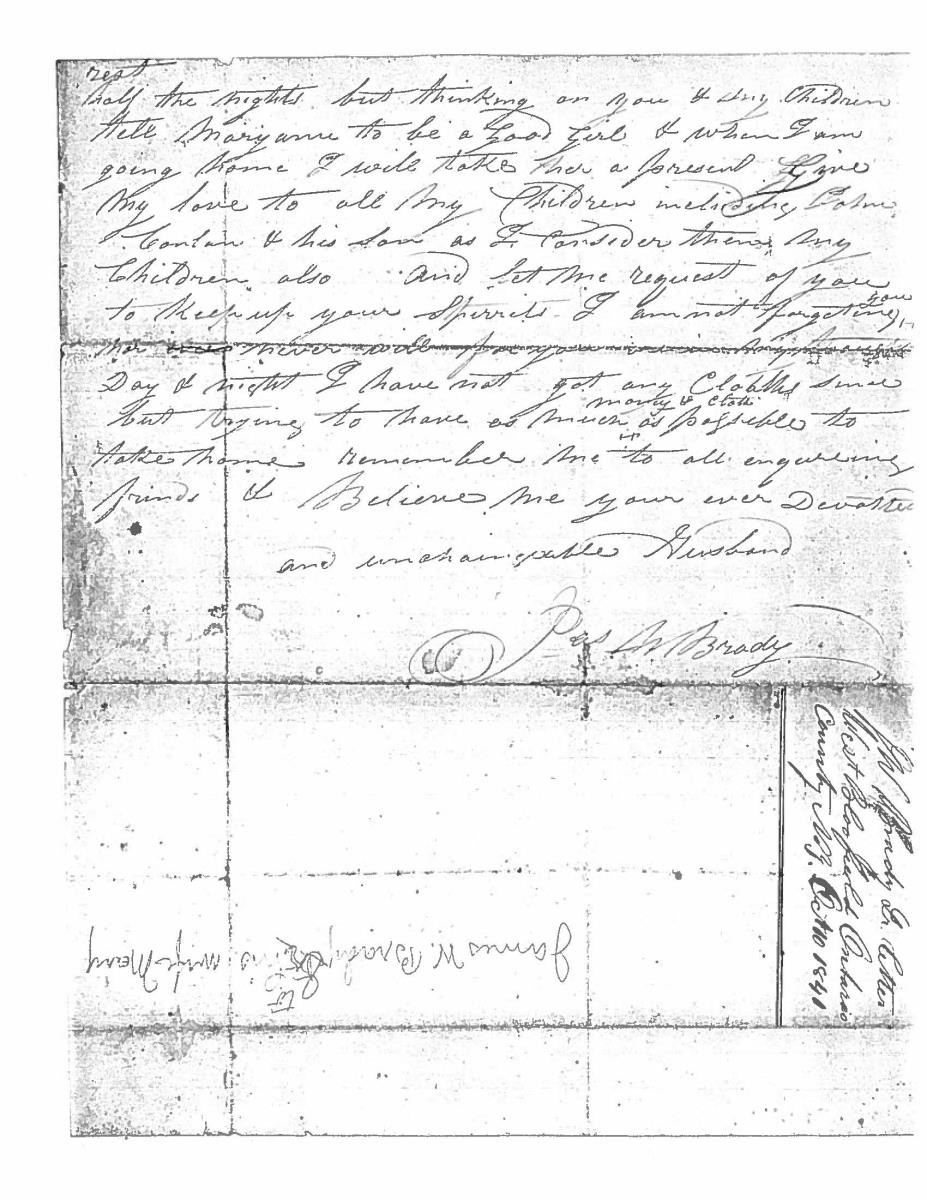 rest
half the nights but thinking on you & my Children
tell Maryann to be a Good Girl & when I am
going home I will take her a present Give
My love to all My Children including John
Conlan & his son as I Consider them My
Children also And let me request of you
to Keep up your Sperrits I am not forgeting
you
nor never will for you
Day & night I have not got any Cloaths since
money & Cloth
but trying to have as much as possible to
take home remember me to all enquireing
frinds & Believe me your ever Devotted
and unchaingeable Husband
Brady
Brady Letter
West Bloofield Ontario
County NY. Oct 10 1841
James W. Brady
to his wife Mary